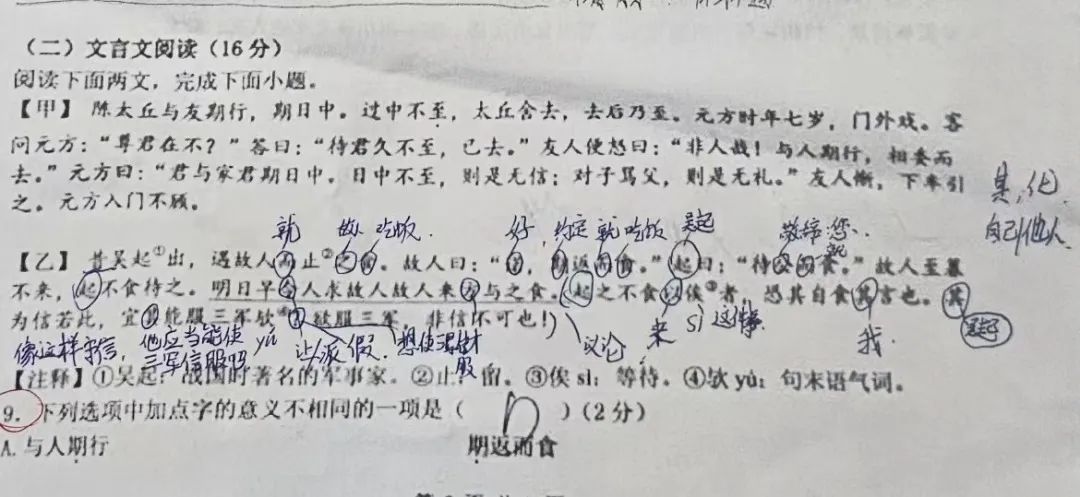 （二）文言文阅读（16分）
阅读下面两文，完成下面小题。
【甲】 陈太丘与友期行，期日中。过中不至，太丘舍去，去后乃至。元方时年七岁，门外戏。客
问元方：“尊君在不？”答曰：“待君久不至，已去。”友人便怒曰：“非人哉！与人期行，相委而
去。”元方曰：“君与家君期日中。日中不至，则是无信；对子骂父，则是无礼。”友人惭，下车引
之。元方入门不顾。
其，代
自己/他人
就 做 吃饭 好，约定 就 吃饭 吴起 敬辞：您
【乙】昔吴起①出，遇故人而止②之食。故人曰：“诺，期返而食。”起曰：“待公而食。”故人至暮
不来，起不食待之。明日早令人求故人故人来方与之食。起之不食以俟③者，恐其自食其言也。其
为信若此，宜其能服三军欤④欲服三军 非信不可也！
像这样守信，他应当能使 yú 让派 假 想使 议论 来 sì 这件事 我 吴起
三军信服吗 服
【注释】①吴起：战国时著名的军事家。②止：留。③俟 sì：等待。④欤 yú：句末语气词。
9. 下列选项中加点字的意义不相同的一项是（ D ）(2分)
A. 与人期行 期返而食